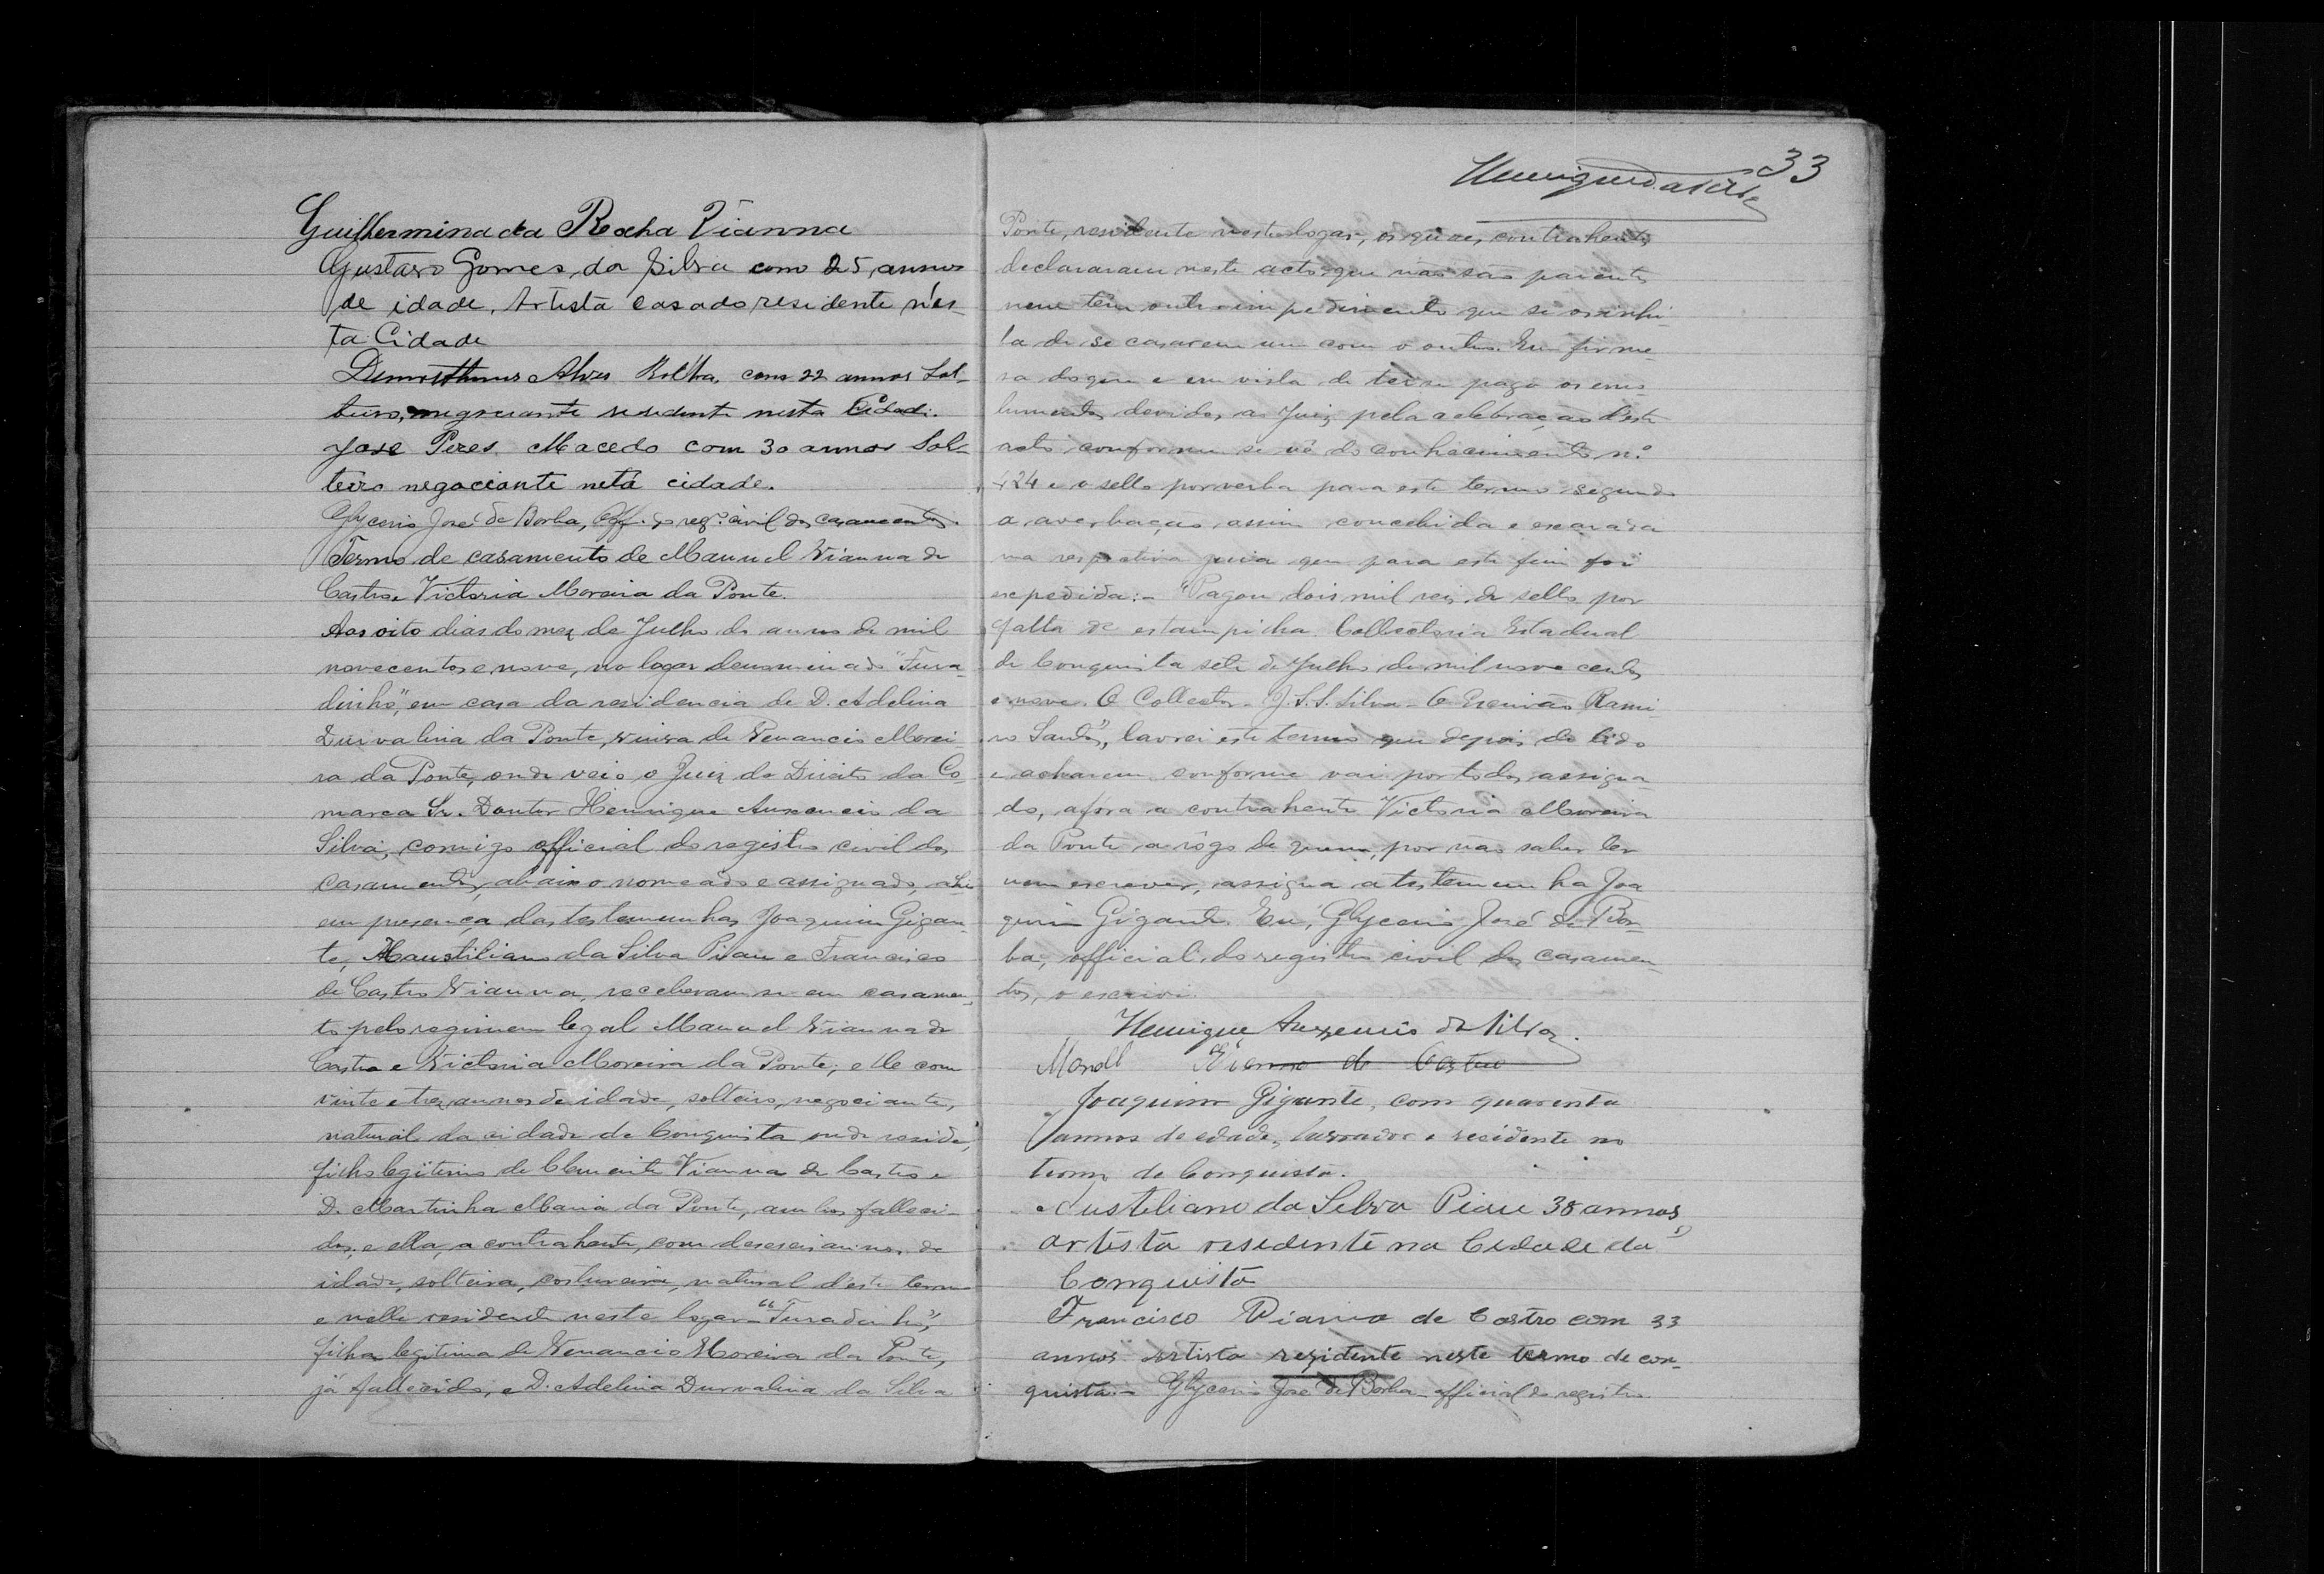 Guilhermina da Rocha Vianna
Gustavo Gomes da Silva com 25 annos
de idade, Artista casado residente n'es-
ta Cidade
Alves Rocha, com 22 annos Sol-
teiro, negociante residente nesta Cidade.
Jose Peres Macedo com 30 annos Sol-
teiro negociante netá cidade.
Glycerio José de Borba, Off. do regº civil dos casamentos.
Termo de casamento de Manuel Vianna de
Castro e Victoria Moreira da Ponte.
Aos oito dias do mez de Julho do anno de mil
novecentos e nove, no logar denominado "Fura-
dinho", em casa da residencia de D. Adelina
Durvalina da Ponte, viuva de Venancio Morei-
ra da Ponte, onde veio o Juiz de Direito da Co-
marca Sr. Doutor Henrique Auxencio da
Silva, comigo official do registro civil dos
casamentos, abaixo nomeado e assignado, ahi
em presença das testemunhas Joaquim Gigan-
te, da Silva Piau e Francisco
de Castro Vianna, receberam-se em casamen-
to pelo regimen legal Manuel Vianna de
Castro e Victoria Moreira da Ponte; elle com
vinte e trez annos de idade, solteiro, negociante,
natural da cidade de Conquista onde reside,
filho legitimo de Clemente Vianna de Castro e
D. Martinha Maria da Ponte, ambos falleci-
dos; e ella, a contrahente, com deseseis annos de
idade, solteira, costureira, natural d'este termo
e nelle residente neste logar - "Furadinho",
filha legitima de Venancio Moreira da Ponte,
já fallecido, e D. Adelina Durvalina da Silva
33
Henrique da Silva
Ponte, residente neste logar, os quaes contrahentes
declararam neste acto que não são parentes
nem têm outro impedimento que si os inhi-
ba de se casarem um com o outro. Em firme-
sa do que e em vista de ter se pago os emo-
lumentos devidos ao Juiz pela celebração d'este
acto conforme se vê do conhecimento n.º
24 e o sello por verba para este termo segundo
a averbação assim concebida e exarada
na respectiva guia que para este fim foi
expedida: - "Pagou dois mil reis de sello por
falta de estampilha. Collectoria Estadual
de Conquista sete de Julho de mil nove centos
e nove. O Collector - J. S. S. Silva - O Escrivão Rami-
ro Santos", lavrei este termo que depois de lido
e acharem conforme vai por todos assigna-
do, afora a contrahente Victoria Moreira
da Ponte a rôgo de quem, por não saber ler
nem escrever, assigna a testemunha Joa
quim Gigante. Eu, Glycerio José de Bor-
ba, official do registro civil dos casamen-
tos, o escrevi.
Henrique Auxencio da Silva.
Vianna de Castro
Joaquim Gigante, com quarenta
annos de edade, lavrador e recidente no
termo de Conquista.
Austiliano da Silva Piau 38 annos
artista residente na Cidade da
Conquista
Francisco Viana de Castro com 33
annos artista rezidente neste termo de con-
quista. - Glycerio José de Borba - official do registro